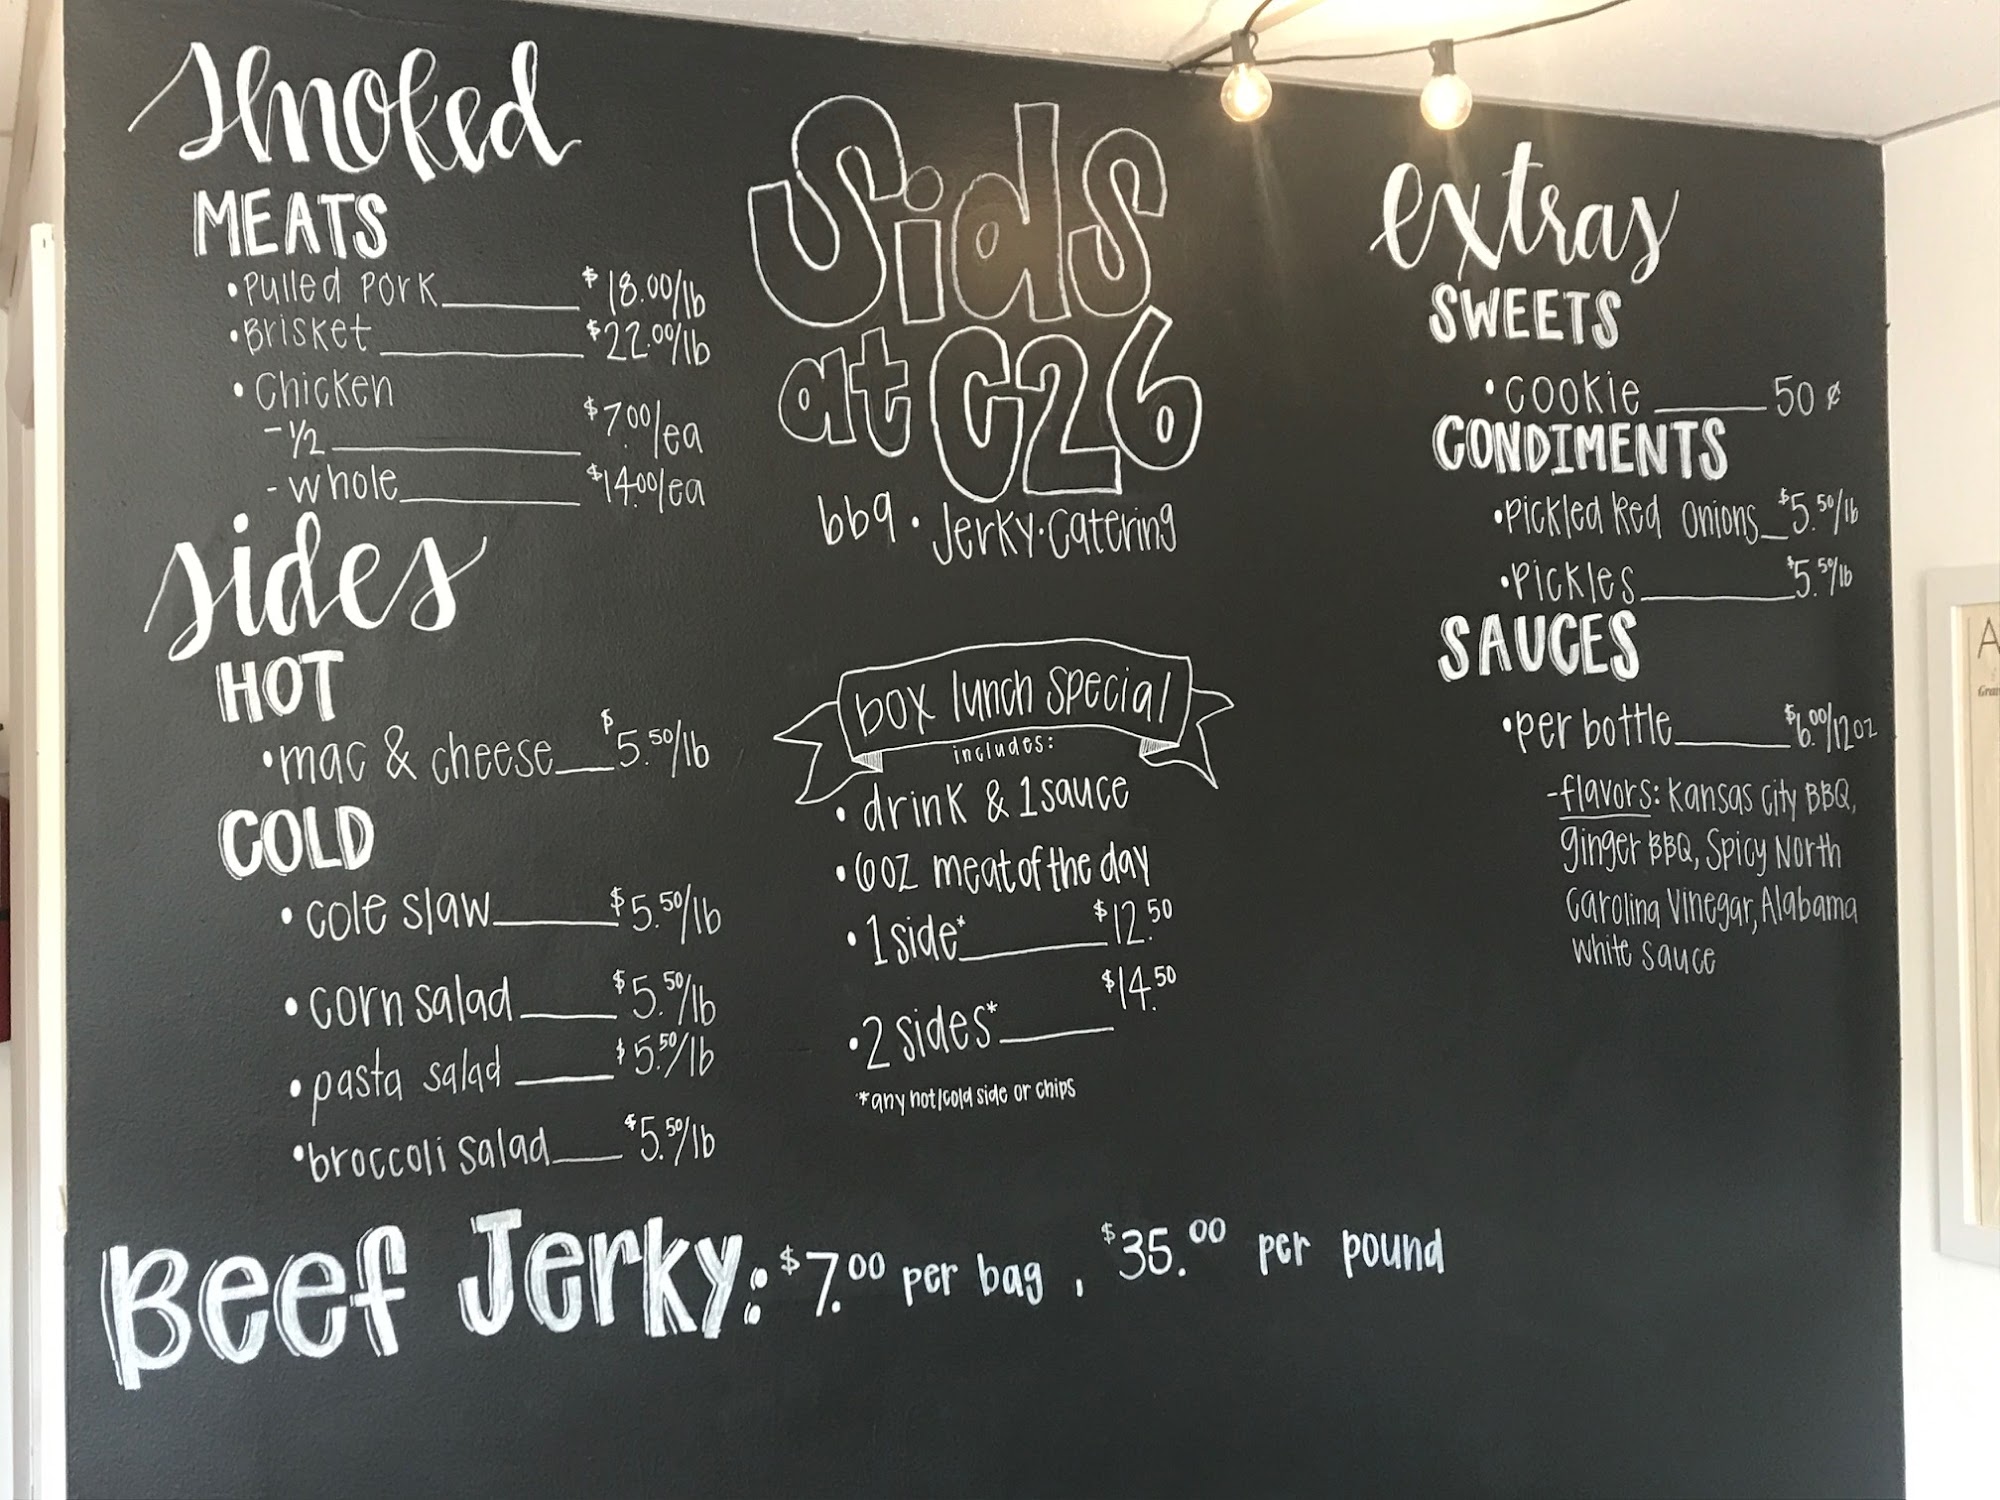 Smoked
MEATS
•Pulled Pork $18.00/lb
•Brisket $22.00/lb
•Chicken
-1/2 $7.00/ea
-whole $14.00/ea
sides
HOT
•mac & cheese $5.50/lb
COLD
•cole slaw $5.50/lb
•corn salad $5.50/lb
•pasta salad $5.50/lb
•broccoli salad $5.50/lb
Sids
at C26
bbq•Jerky•Catering
box lunch special
includes:
•drink & 1 sauce
•6oz meat of the day
•1 side* $12.50
•2 sides* $14.50
*any hot/cold side or chips
extras
SWEETS
•COOKIE 50¢
CONDIMENTS
•Pickled Red Onions $5.50/lb
•Pickles $5.50/lb
SAUCES
•per bottle $6.00/12oz
-flavors: Kansas City BBQ,
ginger BBQ, Spicy North
Carolina Vinegar, Alabama
white sauce
Beef Jerky: $7.00 per bag, $35.00 per pound